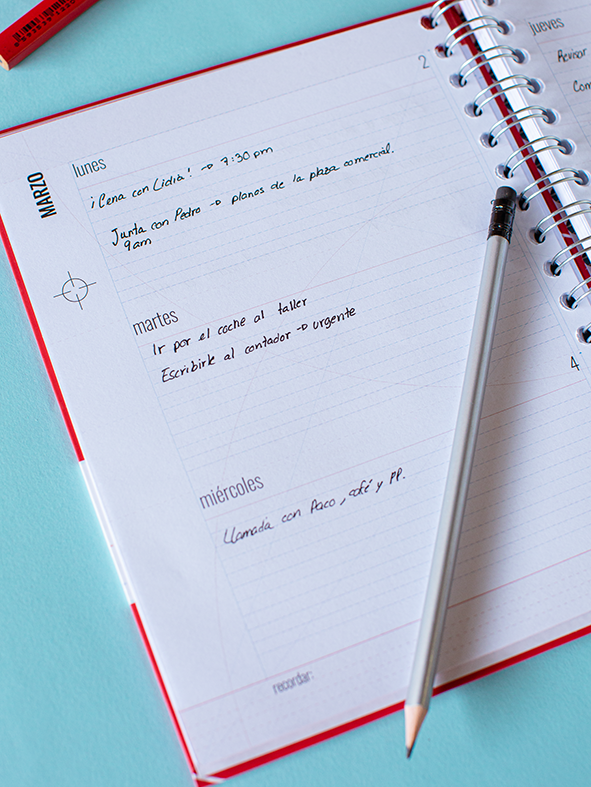 MARZO
lunes
2
¡Cena con Lidia! → 7:30 pm
Junta con Pedro → planos de la plaza comercial.
9am
martes
Ir por el coche al taller
Escribirle al contador → urgente
4
miércoles
Llamada con Paco, café y PP.
recordar:
jueves
Revisar
Com